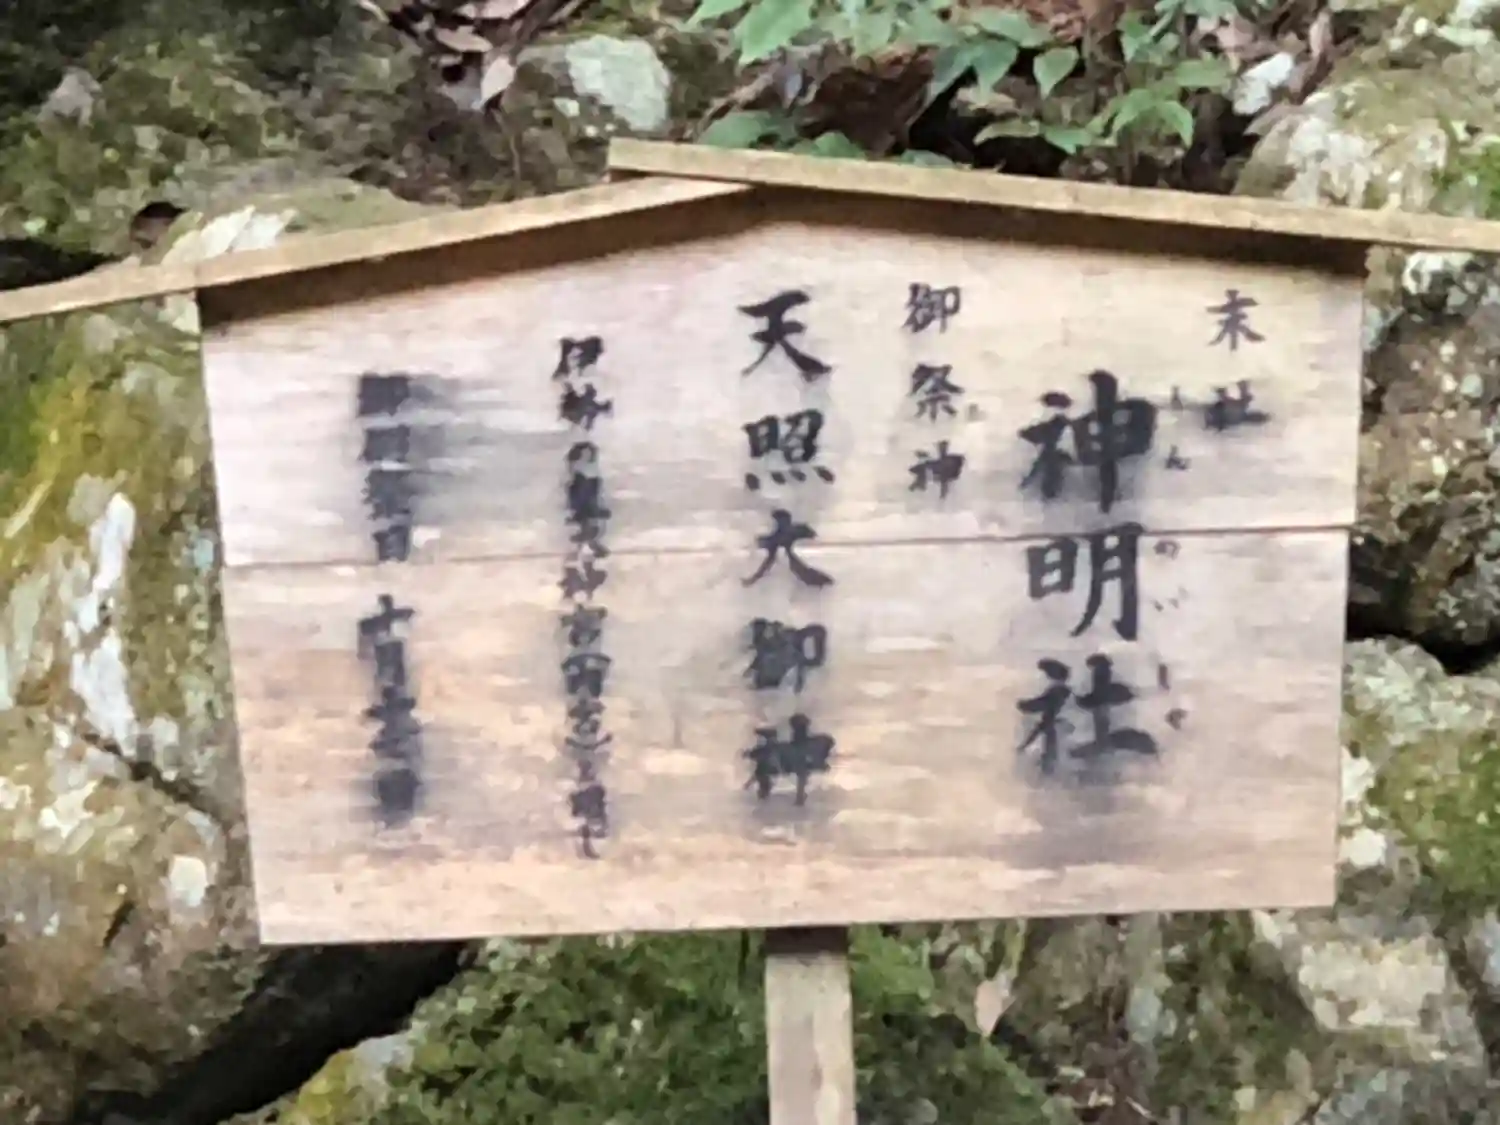 末社
しんめいしゃ
神明社
御祭神
天照大御神
伊勢の皇大神宮(内宮)と
御例祭日 十月